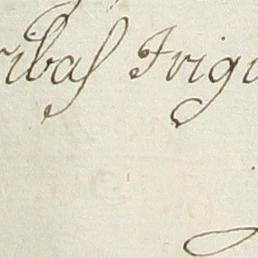 ribas Irigo